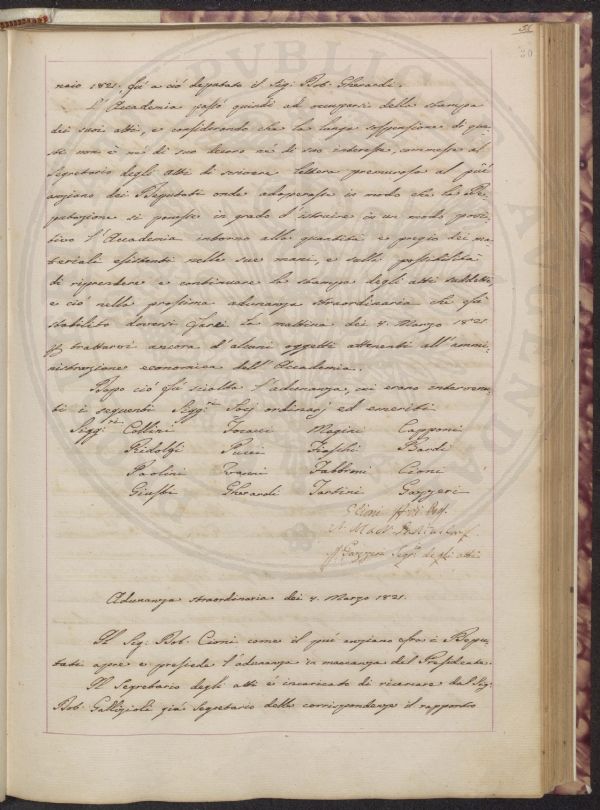 31
30
naio 1821. fù a ciò deputato il Sig: Dot. Gherardi.
L'Accademia passò quindi ad occuparsi della stampa
dei suoi atti, e considerando che la lunga sospensione di que-
sti non è nè di suo decoro nè di suo interesse, commesse al
Segretario degli Atti di scrivere lettera premurosa al più
anziano dei Deputati onde adoperasse in modo che la De-
putazione si ponesse in grado d'istruire in un modo posi-
tivo l'Accademia intorno alla quantità e pregio dei ma-
teriali esistenti nelle sue mani, e sulla possibilità
di riprendere e continuare la stampa degli atti suddetti,
e ciò nella prossima adunanza straordinaria che fù
stabilito doversi fare la mattina dei 4. Marzo 1821
p trattarvi ancora d'alcuni oggetti attenenti all'ammi-
nistrazione economica dell'Accademia.
Dopo ciò fù sciolta l'adunanza, cui erano intervenu-
ti i seguenti Sigg.ri Socj ordinarj ed emeriti
Sigg.ri Collini Focacci Magini Capponi
Ridolfi Pucci Fiaschi Bardi
Paolini Fabbroni Cioni
Giusti Gherardi Tartini Gazzeri
G. Gazzeri Seg.rio degli atti
Adunanza straordinaria dei 4. Marzo 1821.
Il Sig: Dot. Cioni come il più anziano fra i Depu-
tati apre e presiede l'adunanza in mancanza del Presidente.
Il Segretario degli atti è incaricato di ricercare dal Sig:
Dot. Gallizioli già Segretario delle corrispondenze il rapporto